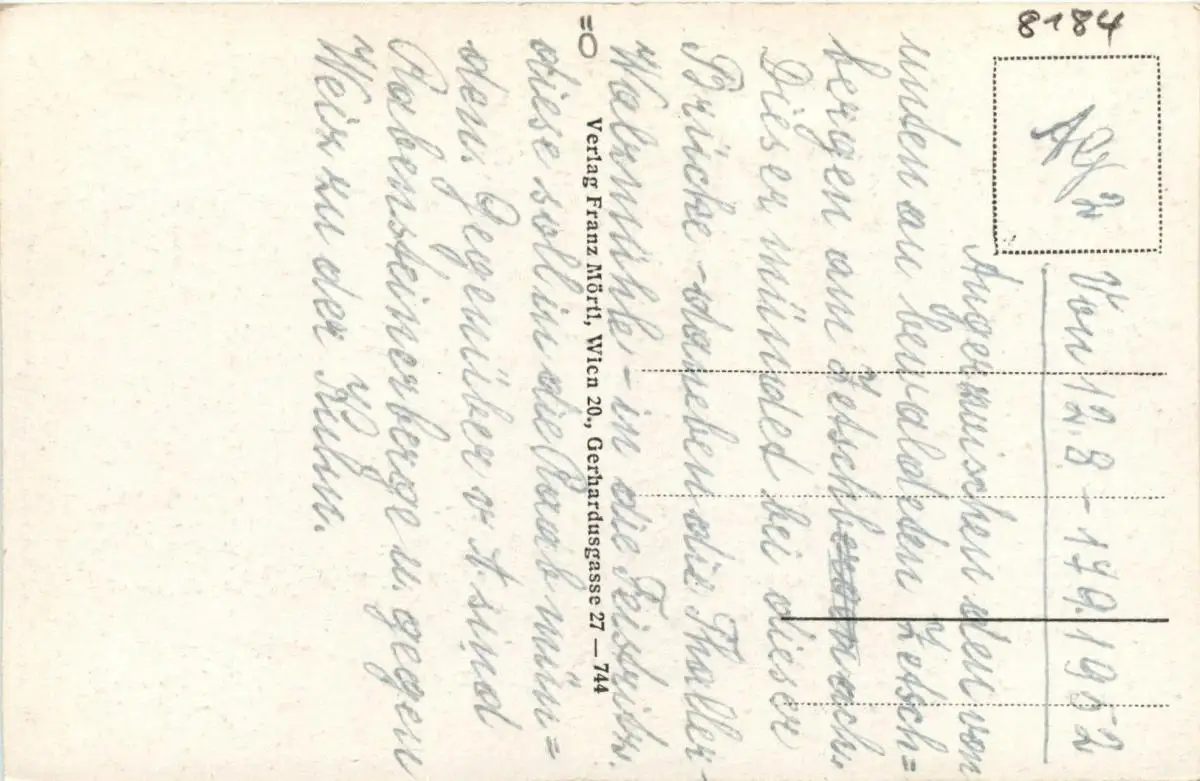 8184
Von 12.8 - 17.9.1952
Anger zwischen den von
unten an bewaldeten Zetsch=
bergen am Zetschbach.
Dieser mündet bei dieser
Brücke - daneben die Thaller-
Walmühle - in die Feistritz.
diese soll in die Raab mün=
den. Gegenüber v. A sind
Rabensteinerberge u. gegen
Weiz zu der Kulm.
Verlag Franz Mörtl, Wien 20., Gerhardusgasse 27 — 744